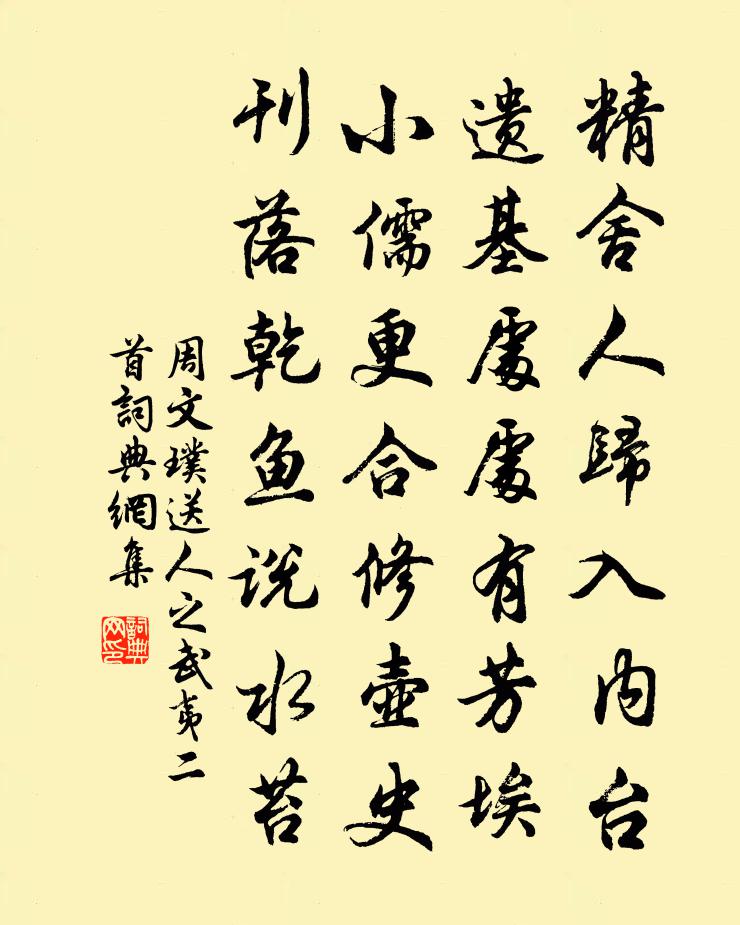 精舍人歸入内台
遗基處處有芳埃
小儒更合修壺史
刊落乾鱼说水苔
周文璞送人之武夷二
首詞典網集
詞典网印